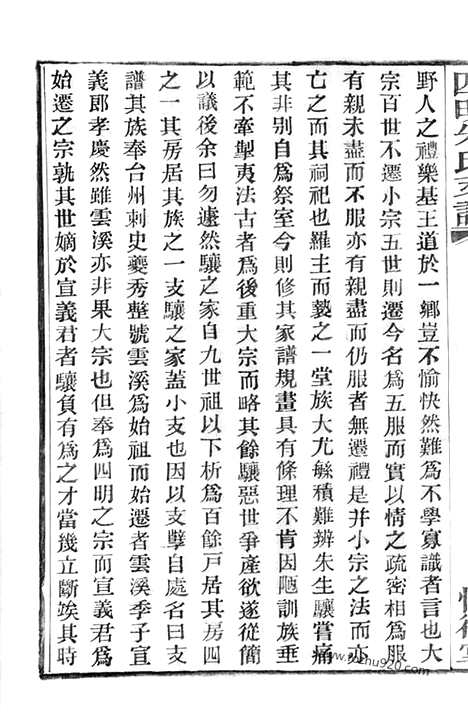 野人之禮樂基王道於一鄉豈不愉快然難為不學寡識者言也大
宗百世不遷小宗五世則遷今名為五服而實以情之疏密相為服
有親未盡而不服亦有親盡而仍服者無遷禮是并小宗之法而亦
亡之而其祠祀也羅主而褻之一堂族大尤緐積難辨朱生驤嘗痛
其非别自為祭室今則修其家譜規畫具有條理不肯因陋訓族垂
範不牽掣夷法古者為後重大宗而略其餘驤惡世爭產欲遂從簡
以議後余曰勿遽然驤之家自九世祖以下析為百餘戸居其房四
之一支其房居其族之一支驤之家蓋小支也因以支擘自處名曰支
譜其族奉台州刺史夔秀整號雲溪為始祖而始遷者雲溪季子宣
義郎孝慶然雖雲溪亦非果大宗也但奉為四明之宗而宣義君為
始遷之宗孰其世嫡於宣義君者驤負有為之才當幾立斷竢其時